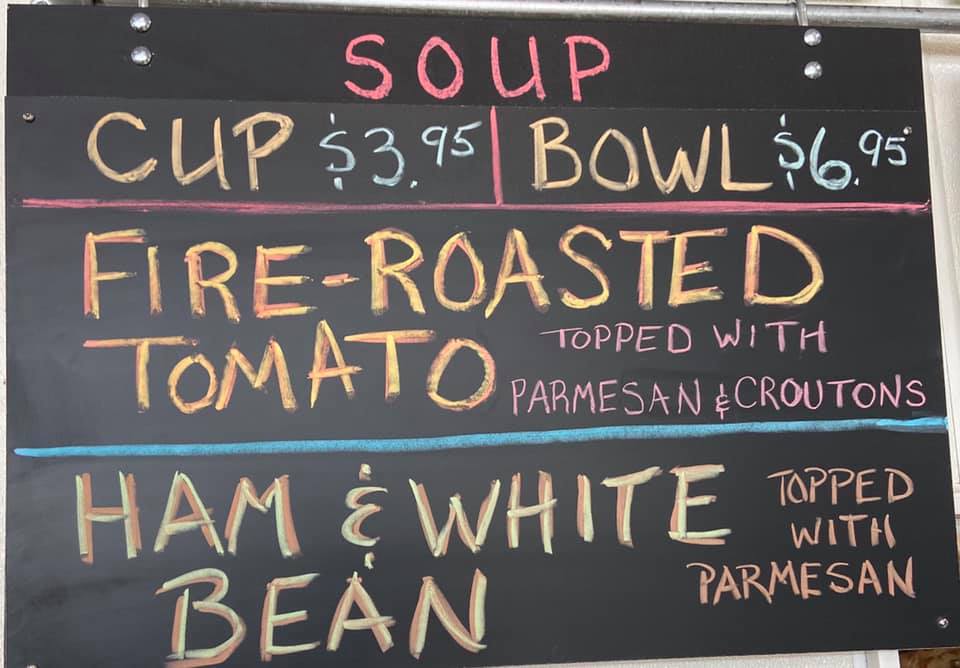 SOUP
CUP $3.95 BOWL $6.95
FIRE-ROASTED
TOMATO TOPPED WITH
PARMESAN & CROUTONS
HAM & WHITE TOPPED
WITH
BEAN PARMESAN